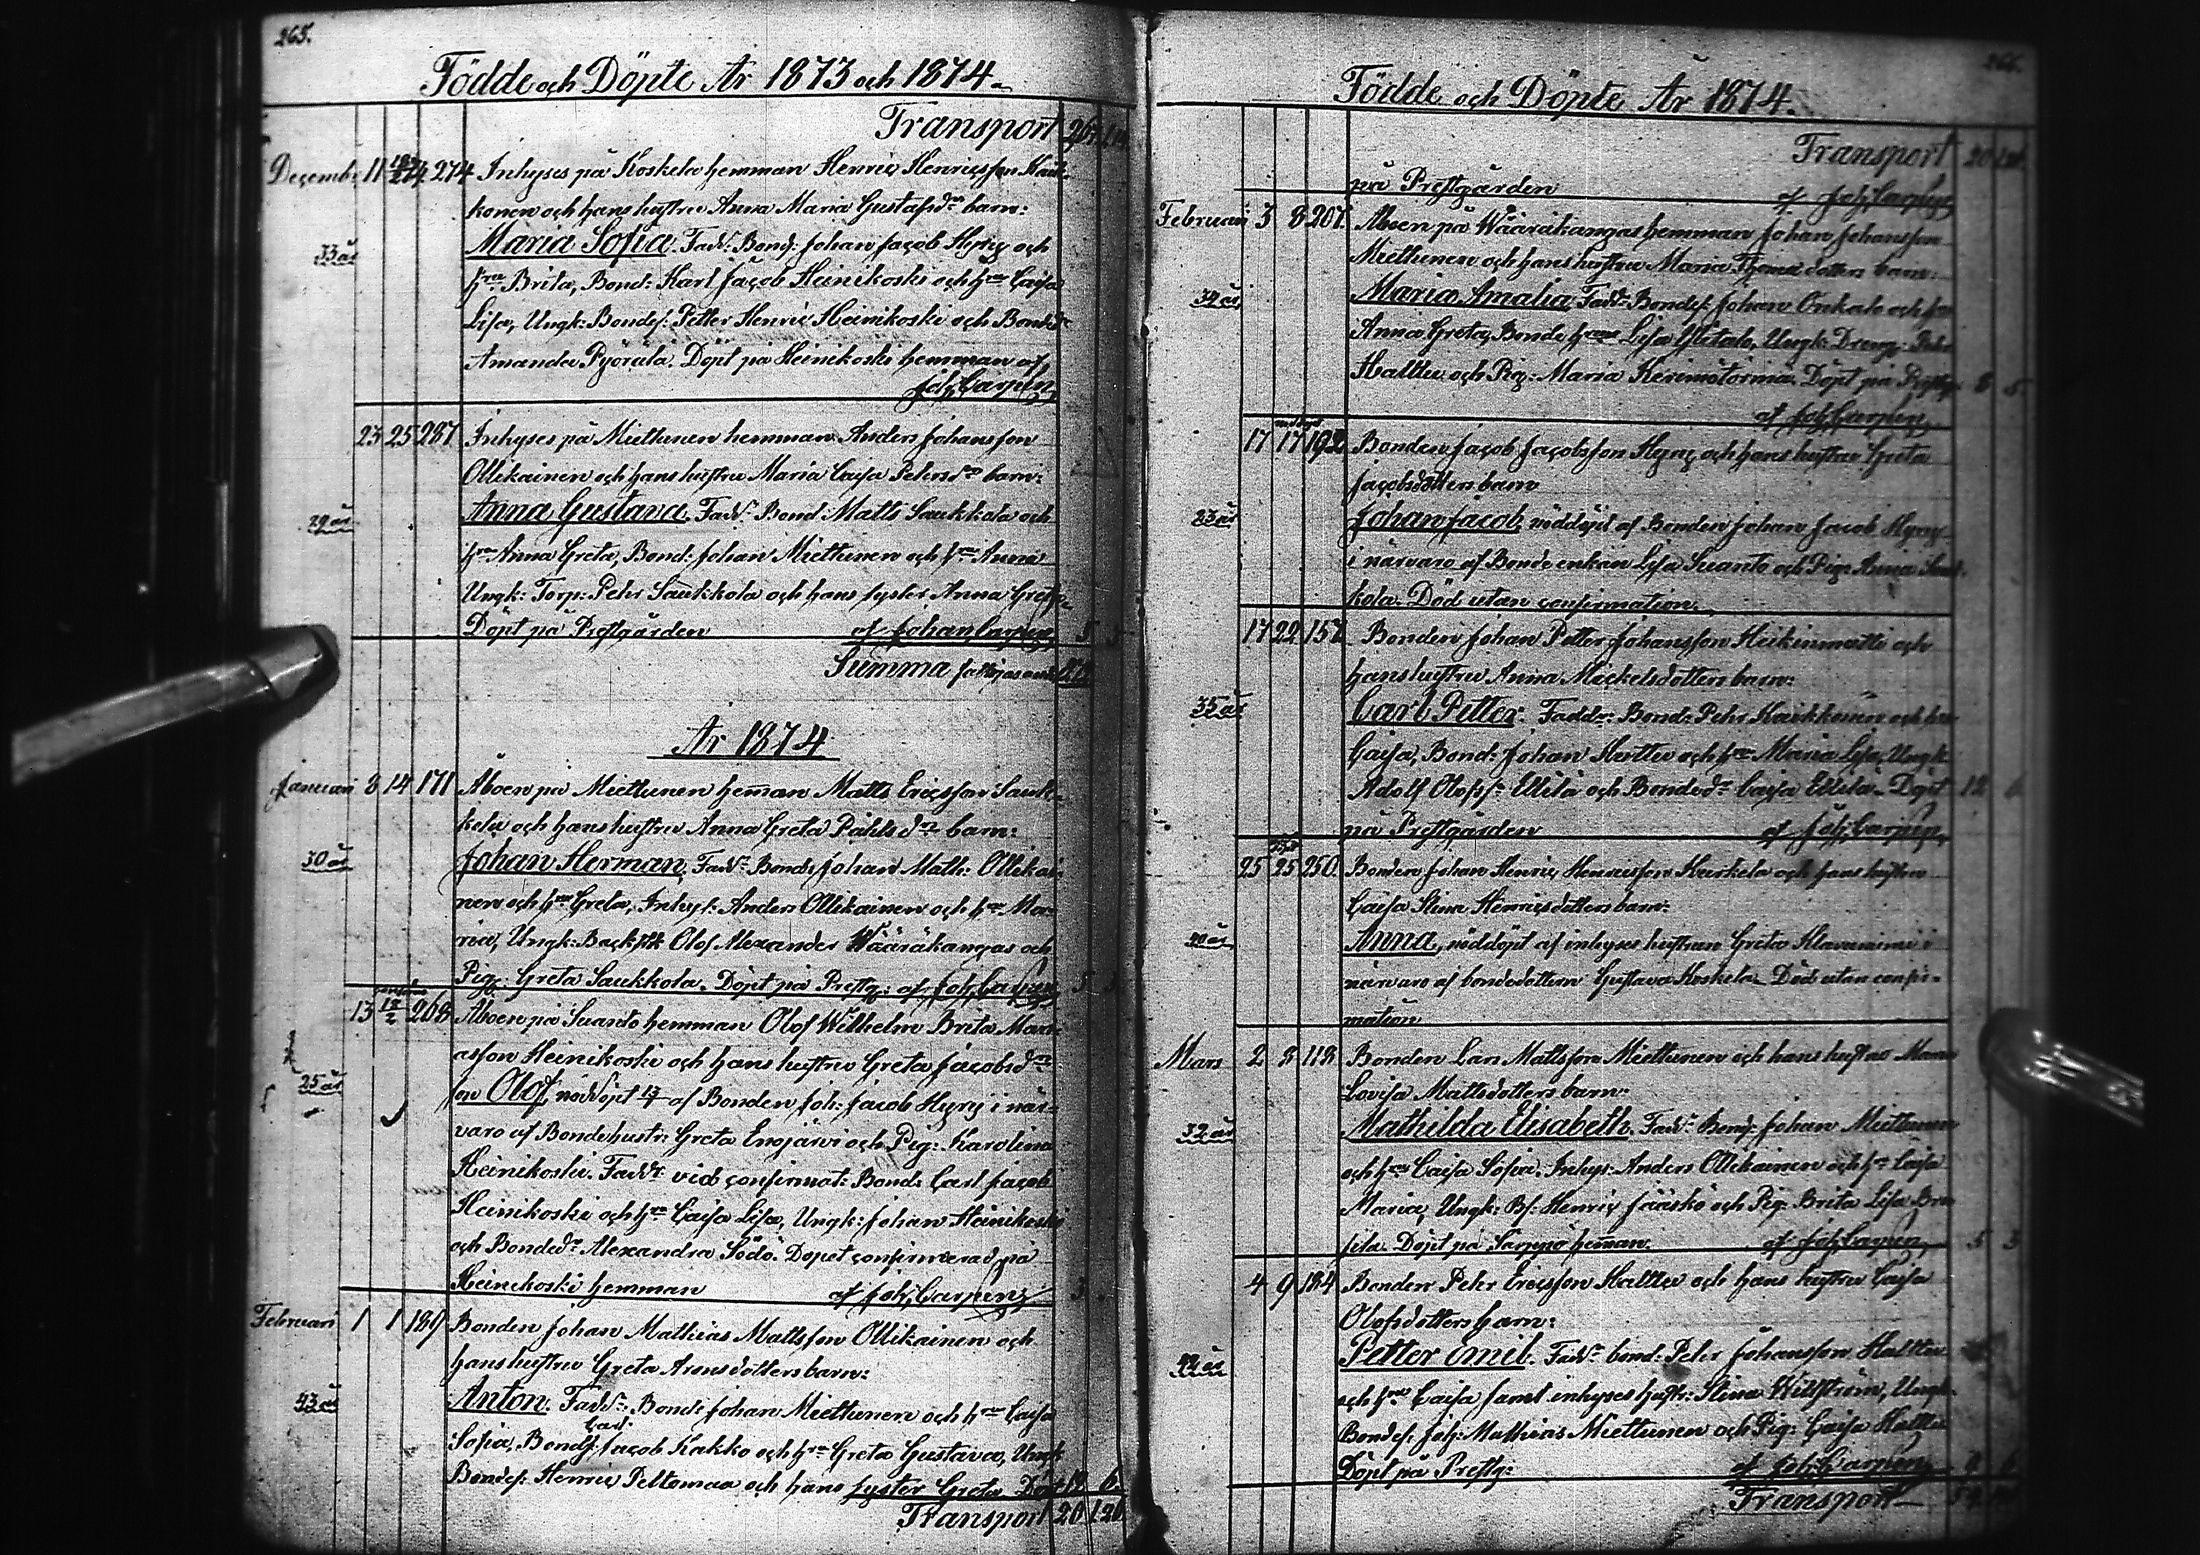 265.
Födde och Döpte År 1873 och 1874.
Transport
Decemb: 11 274 Inhyses på Koskela hemman Henric Henricsson Kauk-
konen och hans hustru Anna Maria Gustafsdr barn:
33 år Maria Sofia. Fadd: Bond: Johan Jacob Hyryç och
hru Brita, Bond: Karl Jacob Heinikoski och hru Caisa
Lisa, Ungk: Bondes: Petter Henric Heinikoski och Bondedr
Amanda Pyörälä. Döpt på Heinikoski hemman af
Joh. Carpén
23 25 287 Inhyses på Miettunen hemman Anders Johansson
Ollikainen och hans hustru Maria Caisa Petersdr barn:
29 år Anna Gustava. Fadd: Bond: Matts Saukkola och
hru Anna Greta, Bond: Johan Miettunen och hru Anna
Ungk: Torp: Pehr Saukkola och hans syster Anna Greta
Döpt på Prestgården af Johan Carpén 5
Summa
År 1874
Januari 8 14 171 Åboen på Miettunen hemman Matts Ericsson Sauk-
kola och hans hustru Anna Greta Påhlsdr barn:
30 år Johan Herman. Fadd: Bond: Johan Math: Ollikai-
nen och hru Greta, Inhys: Anders Ollikainen och hru Ma-
ria, Ungk: Olof Alexander Wääräkangas och
Pig: Greta Saukkola. Döpt på Prestg: af Joh. Carpén 5
13 268 Åboen på Suanto hemman Olof Wilhelm Brita Mari-
asson Heinikoski och hans hustru Greta Jacobsdr
25 år son Olof nöddöpt af Bonden Joh: Jacob Hyryç i när-
varo af Bondehustr: Greta Enojärvi och Pig: Karolina
Heinikoski. Faddr vid confirmat: Bond: Carl Jacob
Heinikoski och hru Caisa Lisa, Ungk: Johan Heinikoski
och Bondedr Alexandra Södö. Dopet confirmerad på
Heinikoski hemman af Joh. Carpén 3
Februari 1 1 189 Bonden Johan Mathias Mattsson Ollikainen och
hans hustru Greta Aronsdotters barn:
43 år Anton. Fadd: Bond: Johan Miettunen och hru Caisa
Sofia, Bondes: Carl Jacob Kakko och hru Greta Gustava, Ungk
Bondes: Henric Peltomaa och hans syster Greta Döpt 12 6
Transport 20 120
266.
Födde och Döpte År 1874.
Transport 20
på Prestgården af Joh. Carpén
Februari 3 8 207 Åboen på Wääräkangas hemman Johan Johansson
Miettunen och hans hustru Maria Thomædotters barn:
34 år Maria Amalia. Fadd: Bondes: Johan Onkalo och hru
Anna Greta, Bonde hru Lisa Ylitalo, Ungk: Dreng: Pehr
Halttu och Pig: Maria Kerimötörmä. Döpt på Prestg: 8 5
af Joh. Carpén
17 17 192 Bonden Jacob Jacobsson Hyryç och hans hustru Greta
Jacobsdotters barn
23 år Johan Jacob, nöddöpt af Bonden Johan Jacob Hyryç
i närvaro af Bonde enkan Lisa Suanto och Pig: Anna
kola. Död utan confirmation.
17 22 157 Bonden Johan Petter Johansson Heikinmatti och
hans hustru Anna Mickelsdotters barn:
35 år Carl Petter. Faddr: Bond: Pehr Kaukkonen och hru
Caisa, Bond: Johan Hurttu och hru Maria Lisa, Ungk
Adolf Olofs: Ellilä och Bondedr Caisa Ellilä. Döpt 12 6
på Prestgården af Joh: Carpén
25 25 250 Bonden Johan Henric Henricsson Kurkela och hans hustru
Caisa Stina Henricsdotters barn:
40 år Anna, nöddöpt af inhyses hustrun Greta Klavuniemi i
närvaro af bondedottern Gustava Koskela. Död utan confir-
mation
Mars 2 8 118 Bonden Lars Mattsson Miettunen och hans hustru Maria
Lovisa Mattsdotters barn:
32 år Mathilda Elisabeth. Fadd: Bond: Johan Miettunen
och hru Caisa Sofia. Inhys: Anders Ollikainen och hru Caisa
Maria, Ungk: Bs: Henric Jääskö och Pig: Brita Lisa
Döpt på Särppö hemman. af Joh. Carpén 5 3
4 9 184 Bonden Pehr Ericsson Halttu och hans hustru Caisa
Olofsdotters barn:
42 år Petter Emil. Faddr bond: Pehr Johansson Halttu
och hru Caisa samt inhyses hustr: Stina Willström, Ungk:
Bondes: Joh: Mathias Miettunen och Pig: Caisa Halttu
Döpt på Prestg: af Joh. Carpén
Transport